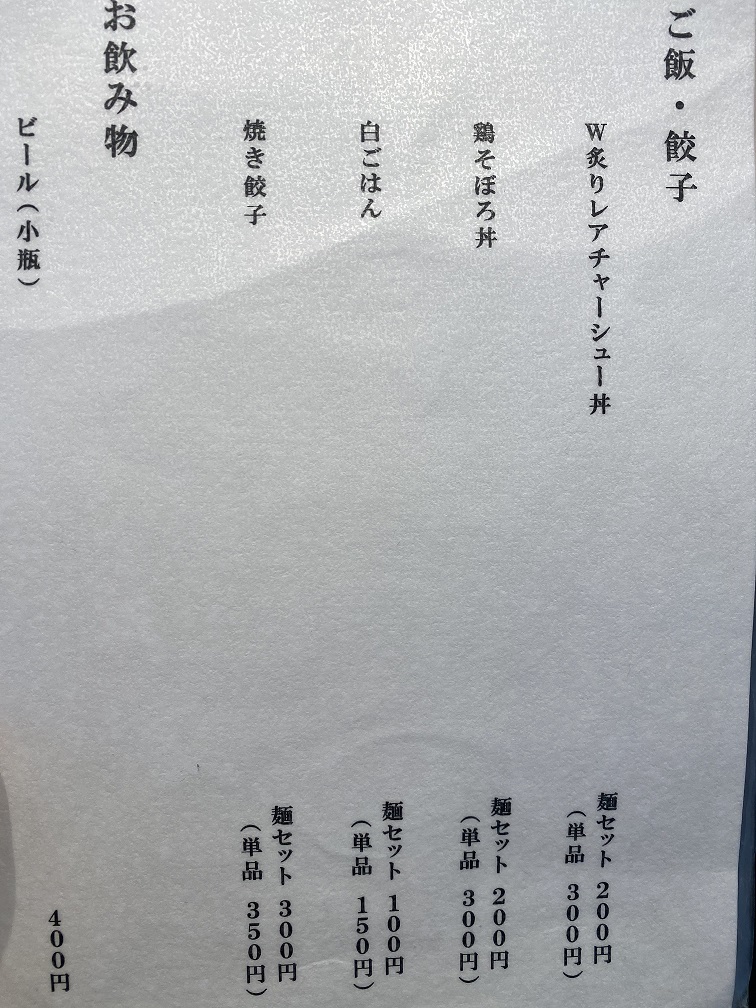 ご飯・餃子
W炙りレアチャーシュー丼
麺セット 200円
（単品 300円）
鶏そぼろ丼
麺セット 200円
（単品 300円）
白ごはん
麺セット 100円
（単品 150円）
焼き餃子
麺セット 300円
（単品 350円）
お飲み物
ビール（小瓶）
400円